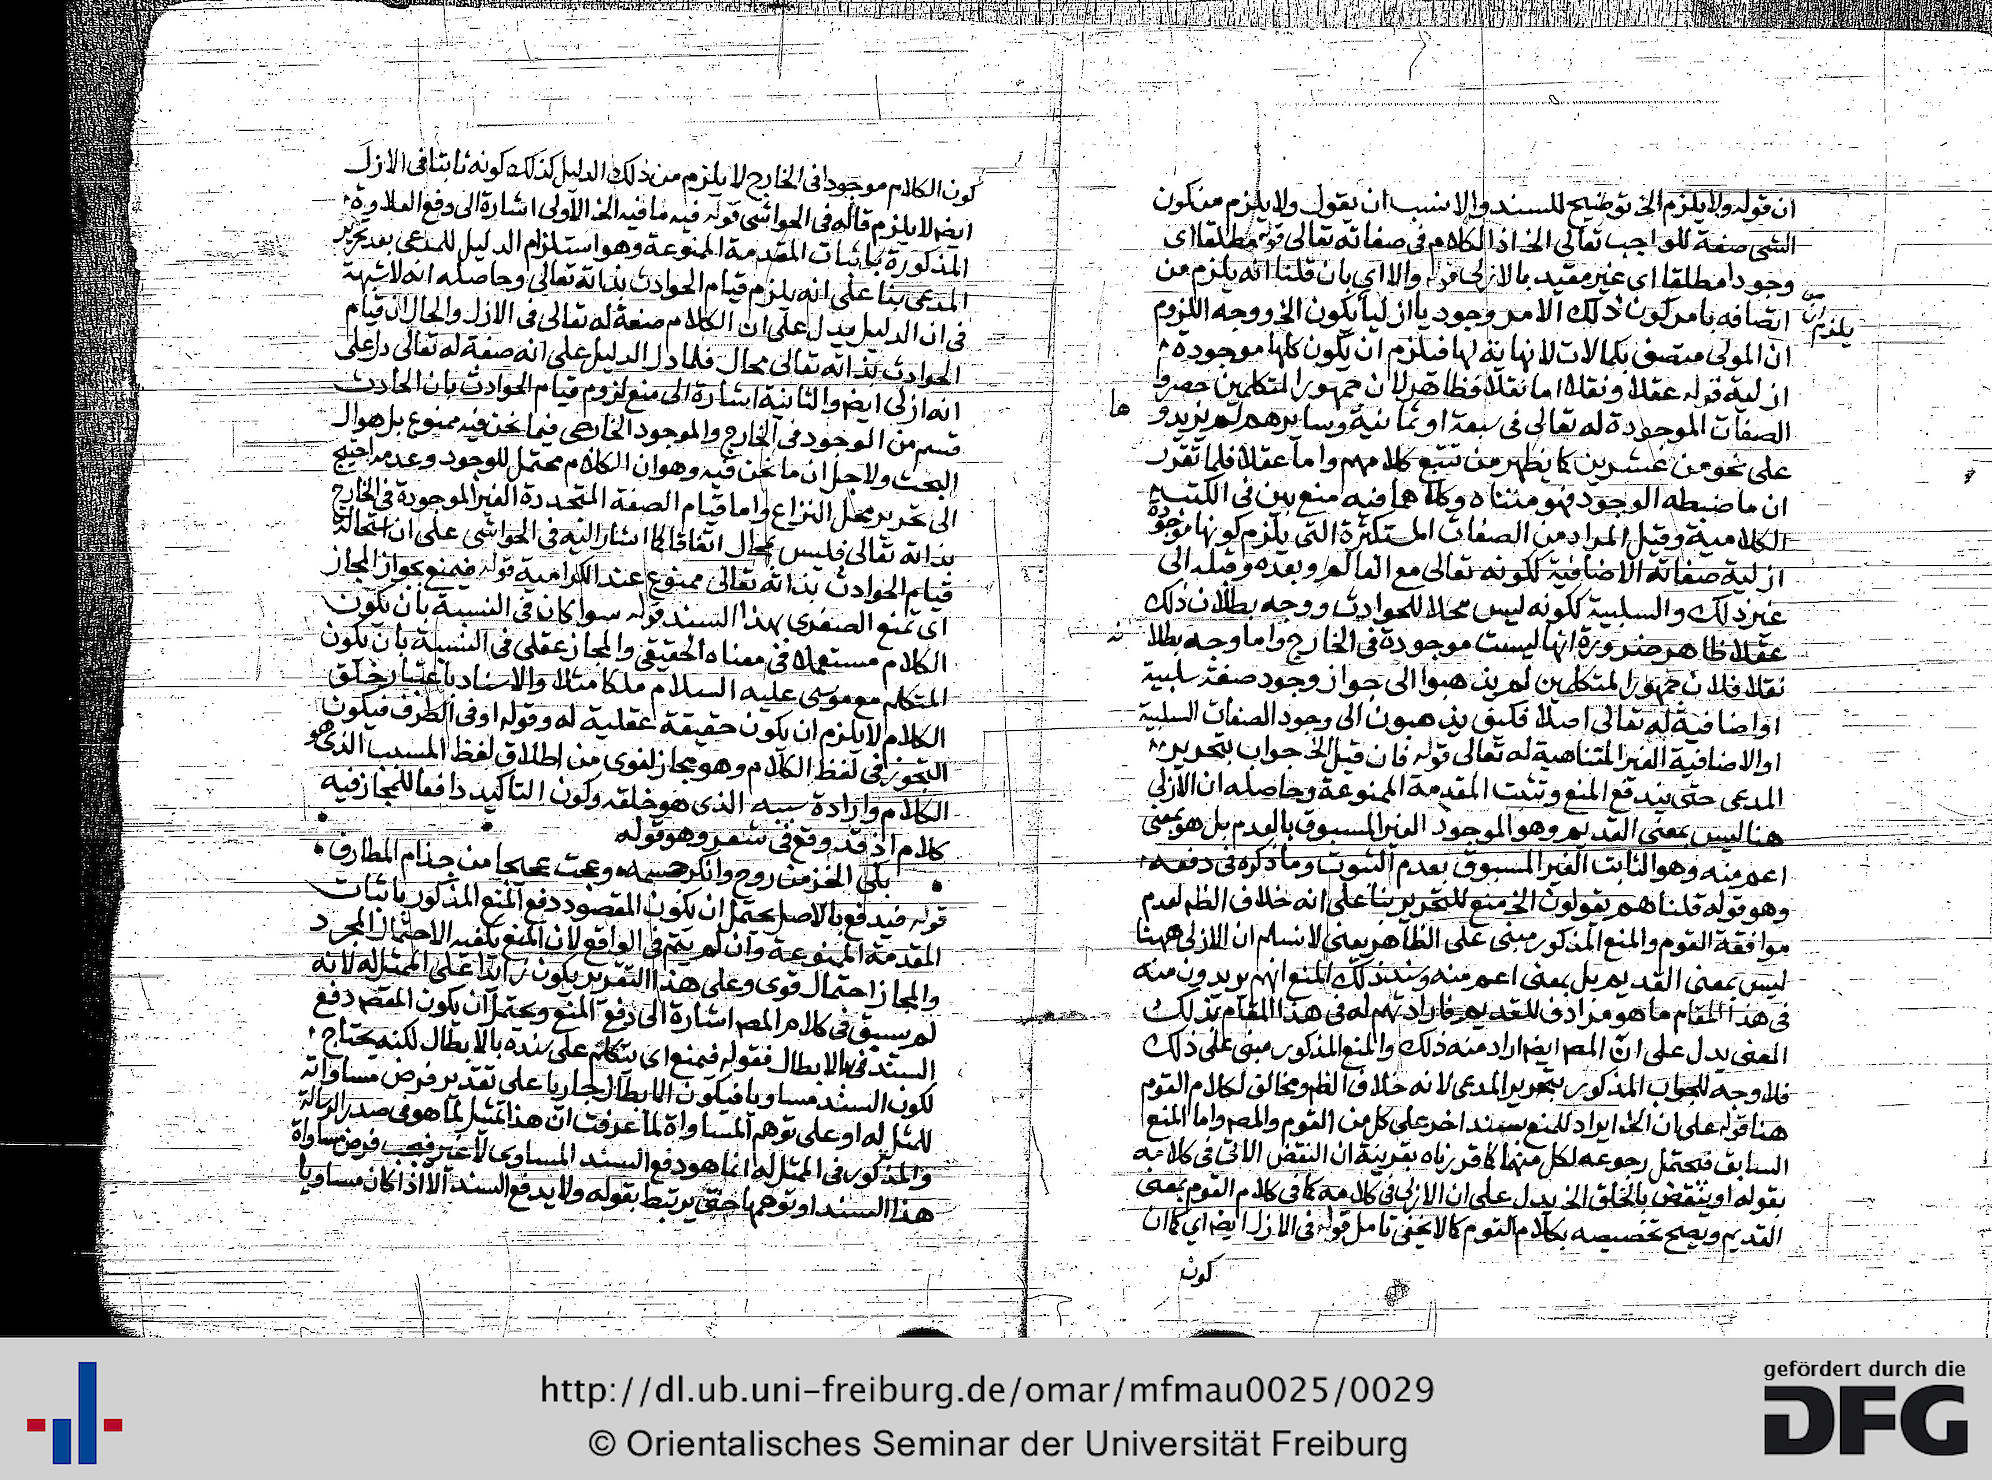 ان قوله ولا يلزم الخ توضيح للسند والانسب ان يقول ولا يلزم من كون
الشى صفة للواجب تعالى الخ اذ الكلام فى صفاته تعالى قوله مطلقا اى
وجودا مطلقا اى غير مقيد بالازلى قوله والا اي بان قلنا انه يلزم من
اتصافه بامر كون ذلك الامر وجوديا ازليا يكون الخ ووجه اللزوم
يلزم
ان المولى متصف بكمالات لا نهاية لها فيلزم ان يكون كلها موجودة
ازلية قوله عقلا ونقلا اما نقلا فظاهر لان جمهور المتكلمين حصروا
الصفات الموجودة له تعالى فى سبعة او ثمانية وسايرهم لم يزيدو
ها
على نحو من عشرين كما يظهر من تتبع كلامهم واما عقلا فلما تقرر
ان ما ضبطه الوجود فهو متناه وكلاهما فيه منع بين فى الكتب
الكلامية وقيل المراد من الصفات المستكثرة التى يلزم كونها موجودة
ازلية صفاته الاضافية ككونه تعالى مع العالم وبعده وقبله الى
غير ذلك والسلبية ككونه ليس محلا للحوادث ووجه بطلان ذلك
عقلا ظاهر ضرورة انها ليست موجودة فى الخارج واما وجه بطلا
نه
نقلا فلان جمهور المتكلمين لم يذهبوا الى جواز وجود صفة سلبية
او اضافية له تعالى اصلا فكيف يذهبون الى وجود الصفات السلبية
او الاضافية الغير المتناهية له تعالى قوله فان قيل الخ جواب بتحرير
المدعى حتى يندفع المنع وتثبت المقدمة الممنوعة وحاصله ان الازلى
هنا ليس بمعنى القديم وهو الموجود الغير المسبوق بالعدم بل هو بمعنى
اعم منه وهو الثابت الغير المسبوق بعدم الثبوت وما ذكره فى دفعه
وهو قوله قلنا هم يقولون الخ منع للتحرير بنا على انه خلاف الظ لعدم
موافقة القوم والمنع المذكور مبنى على الظاهر يعنى لا نسلم ان الازلى ههنا
ليس بمعنى القديم بل بمعنى اعم منه وسند ذلك المنع انهم يريدون منه
فى هذا المقام ما هو مرادف للقديم فارادتهم له فى هذا المقام بذلك
المعنى يدل على ان المص ايضا اراد منه ذلك والمنع المذكور مبنى على ذلك
فلا وجه للجواب المذكور بتحرير المدعى لانه خلاف الظ ومخالف لكلام القوم
هنا قوله على ان الخ ايراد للمنع بسند اخر على كل من القوم والمص واما المنع
السابق فيحتمل رجوعه لكل منهما كما قررناه بقرينة ان النقض الاتى فى كلامه
بقوله او ينقض بالخلق الخ يدل على ان الازلى فى كلامه كما فى كلام القوم بمعنى
القديم ويصح تخصيصه بكلام القوم كما لا يخفى تامل قوله فى الازل ايضا اي كما ان
كون
كون الكلام موجودا فى الخارج لا يلزم من ذلك الدليل كذلك كونه ثابتا فى الازل
ايضا لا يلزم قاله فى الحواشى قوله فيه ما فيه الخ الاولى اشارة الى دفع العلاوة
المذكورة باثبات المقدمة الممنوعة وهو استلزام الدليل للمدعى بعد تحرير
المدعى بنا على انه يلزم قيام الحوادث بذاته تعالى وحاصله انه لا شبهة
فى ان الدليل يدل على ان الكلام صفة له تعالى فى الازل والحال ان قيام
الحوادث بذاته تعالى محال فلما دل الدليل على انه صفة له تعالى دل على
انه ازلى ايضا والثانية اشارة الى منع لزوم قيام الحوادث بان الحادث
قسم من الموجود فى الخارج والموجود الخارجى فيما نحن فيه ممنوع بل هو اول
البحث ولاجل ان ما نحن فيه وهو ان الكلام محتمل للوجود وعدمه احتيج
الى تحرير محل النزاع واما قيام الصفة المتجددة الغير الموجودة فى الخارج
بذاته تعالى فليس بمحال اتفاقا كما اشار اليه فى الحواشى على ان استحالة
قيام الحوادث بذاته تعالى ممنوع عند الكرامية قوله فيمنع بجواز المجاز
اى تمنع الصغرى بهذا السند قوله سوا كان فى النسبة بان يكون
الكلام مستعملا فى معناه الحقيقي والمجاز عقلى فى النسبة بان يكون
المتكلم مع موسى عليه السلام ملكا مثلا والاسناد باعتبار خلق
الكلام لا يلزم ان يكون حقيقة عقلية له وقوله او فى الطرف فيكون
التجوز فى لفظ الكلام وهو مجاز لغوى من اطلاق لفظ المسبب الذى هو
الكلام وارادة سببه الذى هو خلقه وكون التاكيد دافعا للمجاز فيه
كلام اذ قد وقع فى شعر وهو قوله
بكى الخز من روح وانكر جسمه وعجت عجيجا من جذام المطارف
قوله فيدفع بالاصل يحتمل ان يكون المقصود دفع المنع المذكور باثبات
المقدمة الممنوعة وان لم يتم فى الواقع لان المنع يكفيه الاحتمال المجرد
والمجاز احتمال قوى وعلى هذا التقرير يكون زائدا على الممثل له لانه
لم يسبق فى كلام المص اشارة الى دفع المنع ويحتمل ان يكون المقص دفع
السند فى بالابطال فقوله فيمنع اى يتكلم على سنده بالابطال لكنه يحتاج
لكون السند مساويا فيكون الابطال جاريا على تقدير فرض مساواته
للمثل له او على توهم المساواة لما عرفت ان هذا تمثيل لما هو فى صدر الرسالة
والمذكور فى الممثل له انما هو دفع السند المساوى لا غير فيجب فرض مساواة
هذا السند او توهمها حتى يرتبط بقوله ولا يدفع السند الا اذا كان مساويا
http://dl.ub.uni-freiburg.de/omar/mfmau0025/0029
© Orientalisches Seminar der Universität Freiburg
gefördert durch die
DFG